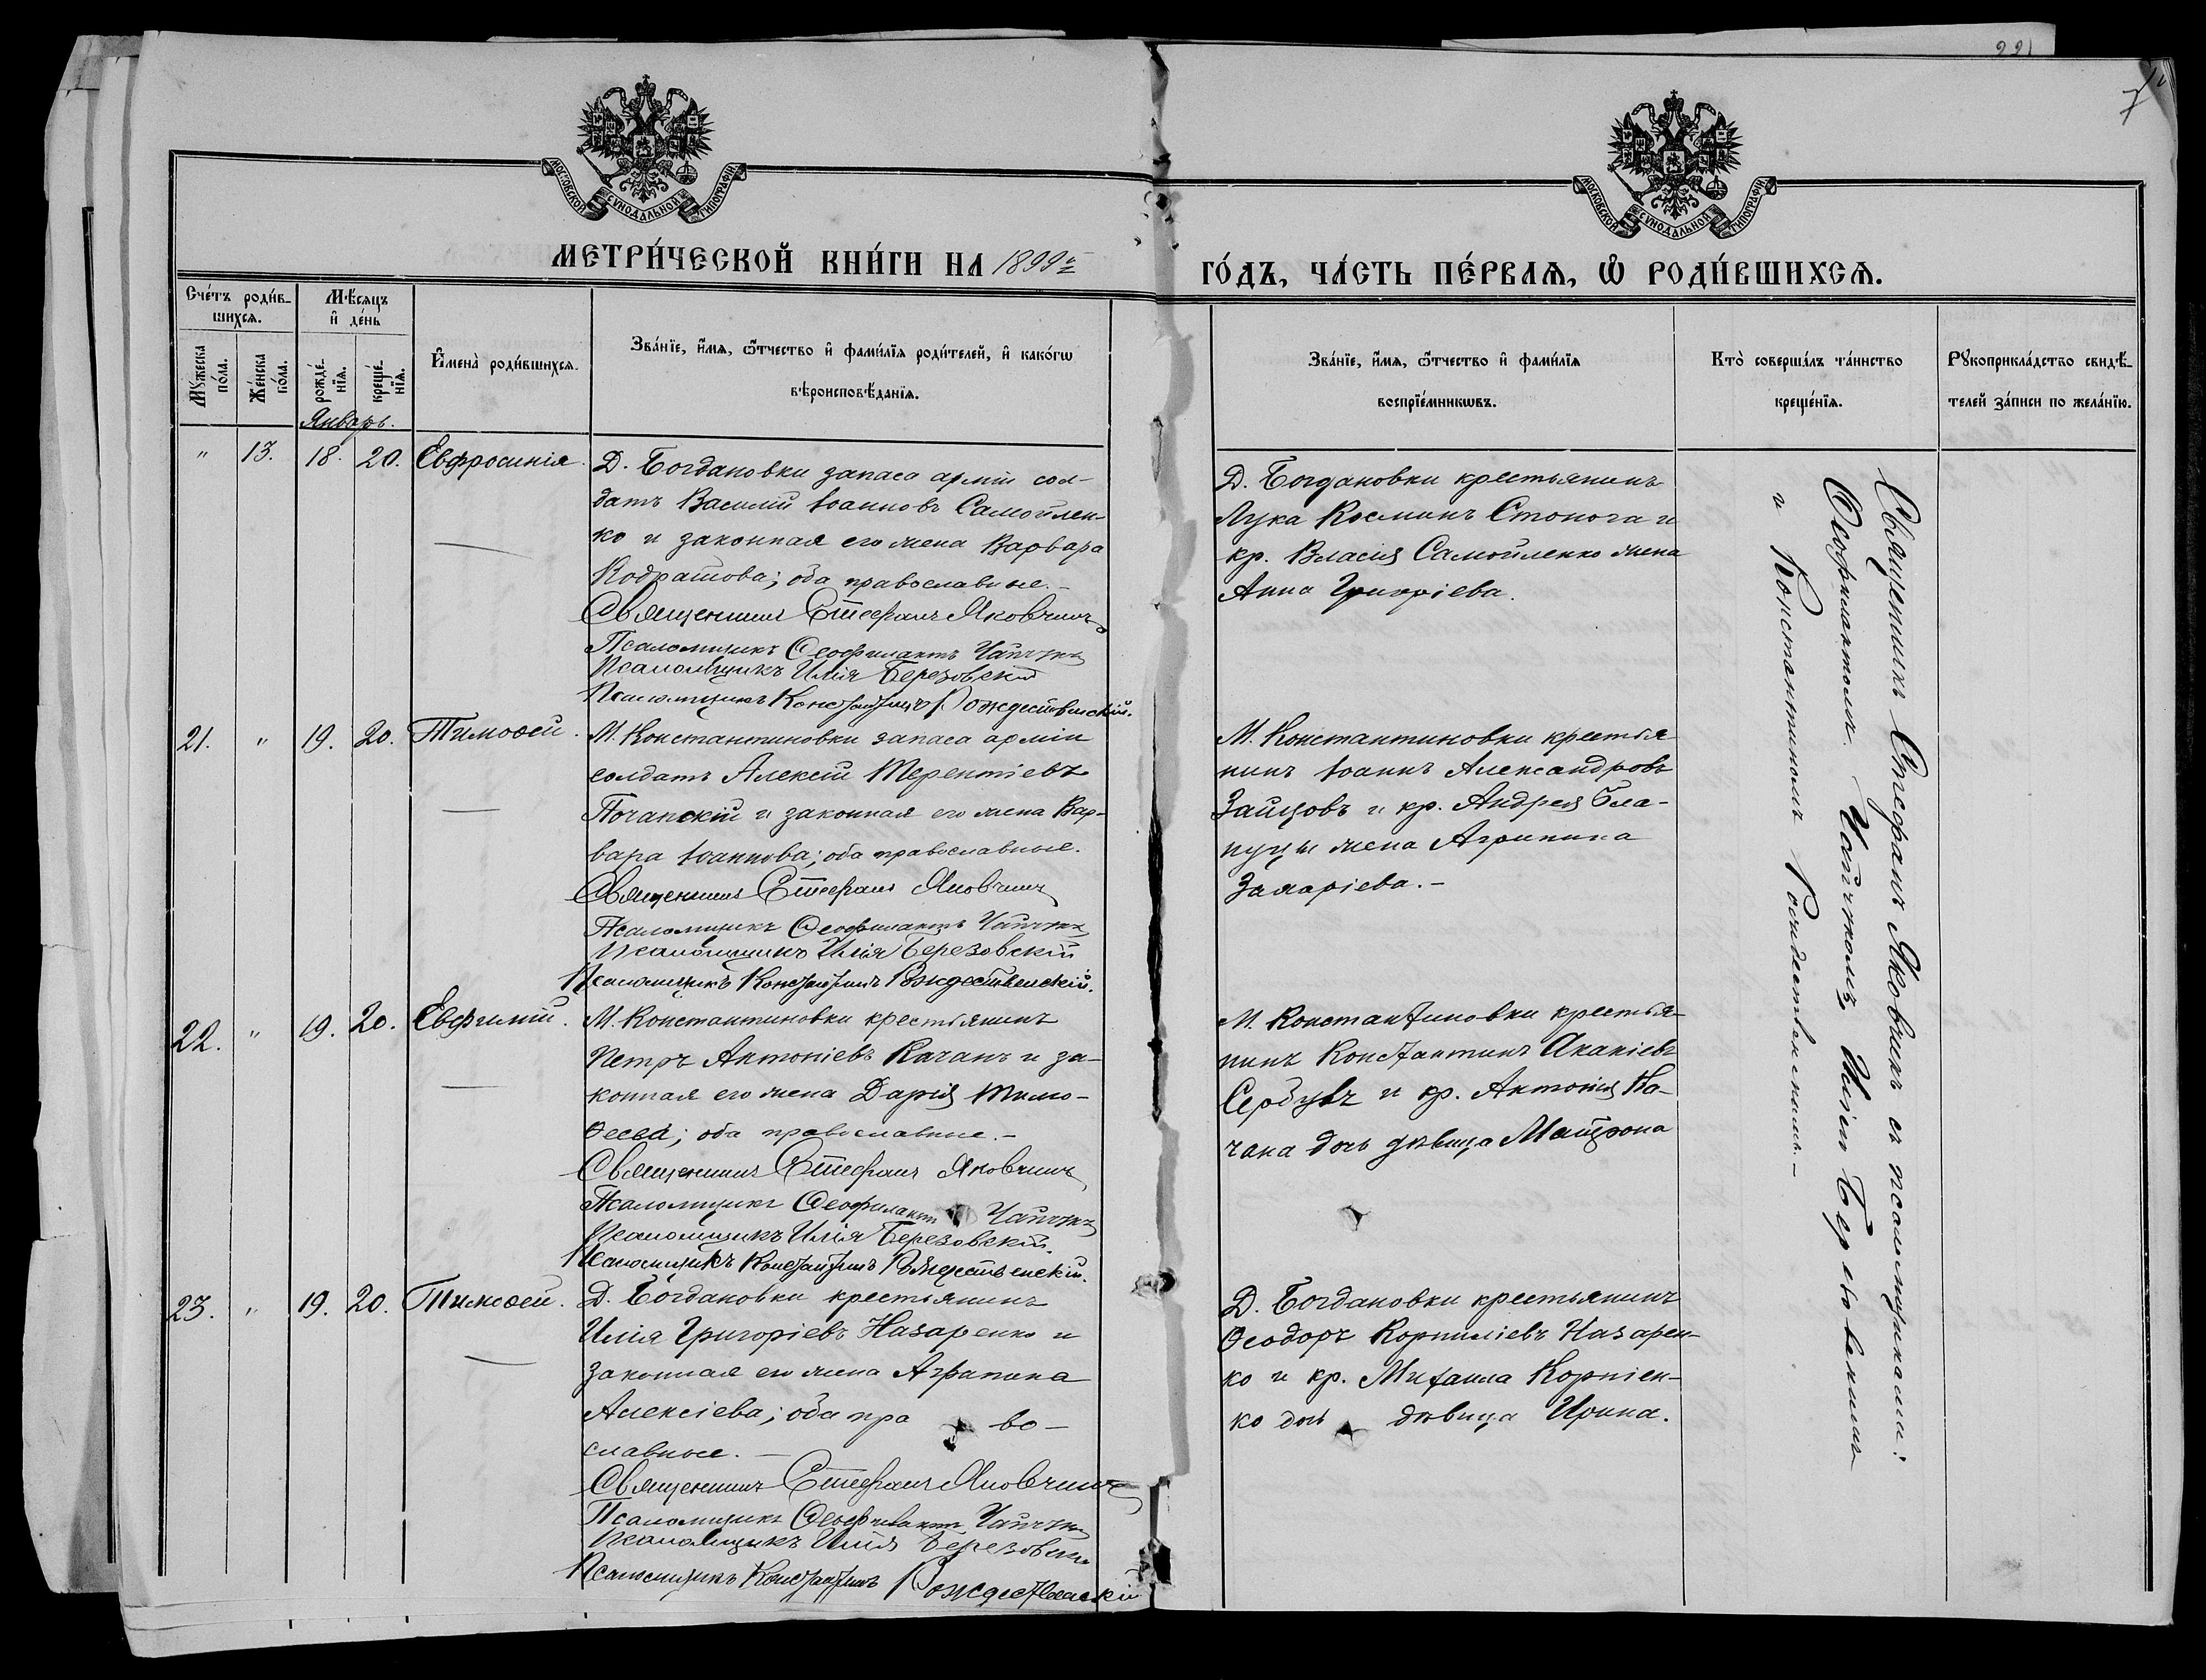 221
7
МОСКОВСКОЙ СѴНОДАЛЬНОЙ ТИПОГРАФІИ.
МОСКОВСКОЙ СѴНОДАЛЬНОЙ ТИПОГРАФІИ.
МЕТРИ́ЧЕСКОЙ КНИ́ГИ НА 1899й
ГО́ДЪ, ЧА́СТЬ ПЕ́РВАѦ, Ѡ҆ РОДИ́ВШИХСѦ.
Сче́тъ роди́в-
шихсѧ.
Мѣ́сѧцъ
и҆ де́нь
Мꙋ́жеска по́ла.
Же́нска по́ла.
рожде́-
нїѧ.
креще́-
нїѧ.
И҆мена̀ роди́вшихсѧ.
Зва́нїе, и҆́мѧ, ѻ҆́тчество и҆ фами́лїѧ роди́телей, и҆ како́гѡ
вѣроисповѣ́данїѧ.
Зва́нїе, и҆́мѧ, ѻ҆́тчество и҆ фами́лїѧ
воспрїе́мникѡвъ.
Кто̀ соверша́лъ та́инство
креще́нїѧ.
Рꙋкоприкла́дство свидѣ́-
телей за́писи по жела́нїю.
Январь.
" 13. 18. 20. Евфросинія.
Д. Богдановки запаса арміи сол-
датъ Василій Іоанновъ Самойлен-
ко и законная его жена Варвара
Кодратова; оба православные.-
Священникъ Стефанъ Яковчикъ
Псаломщикъ Ѳеофилактъ Чайчукъ
Псаломщикъ Илія Березовскій
Псаломщикъ Константинъ Рождественскій.
Д. Богдановки крестьянинъ
Лука Косминъ Стонога и
кр. Власія Самойленко жена
Анна Григоріева.
21. " 19. 20. Тимоѳей.
М. Константиновки запаса арміи
солдатъ Алексій Терентіевъ
Почапскій и законная его жена Вар-
вара Іоаннова; оба православные.
Священникъ Стефанъ Яковчикъ
Псаломщикъ Ѳеофилактъ Чайчукъ
Псаломщикъ Илія Березовскій
Псаломщикъ Константинъ Рождественскій.
М. Константиновки крестья
нинъ Іоаннъ Александровъ
Зайцовъ и кр. Андрея
жена Агрипина
Захаріева.-
22. " 19. 20. Евфимій.
М. Константиновки крестьянинъ
Петръ Антоніевъ Качанъ и за-
конная его жена Дарія Тимо-
ѳеева; оба православные.-
Священникъ Стефанъ Яковчикъ
Псаломщикъ Ѳеофилактъ Чайчукъ
Псаломщикъ Илія Березовскій.
Псаломщикъ Константинъ Рождественскій.
М. Константиновки крестья-
нинъ Константинъ Акакіевъ
и кр. Антонія Ка-
чана дочь дѣвица Матрона
23. " 19. 20. Тимоѳей.
Д. Богдановки крестьянинъ
Илія Григоріевъ Назаренко и
законная его жена Агрипина
Алексіева; оба пра во-
славные.-
Священникъ Стефанъ Яковчикъ
Псаломщикъ Ѳеофилактъ Чайчукъ
Псаломщикъ Илія Березовскій
Псаломщикъ Константинъ Рождественскій
Д. Богдановки крестьянинъ
Ѳеодоръ Корниліевъ Назарен-
ко и кр. Михаила Корніен-
ко дочь дѣвица Ирина.
Священникъ Стефанъ Яковчикъ съ псаломщиками:
Ѳеофилактомъ Чайчукомъ, Иліею Березовскимъ
и Константиномъ Рождественскимъ.-